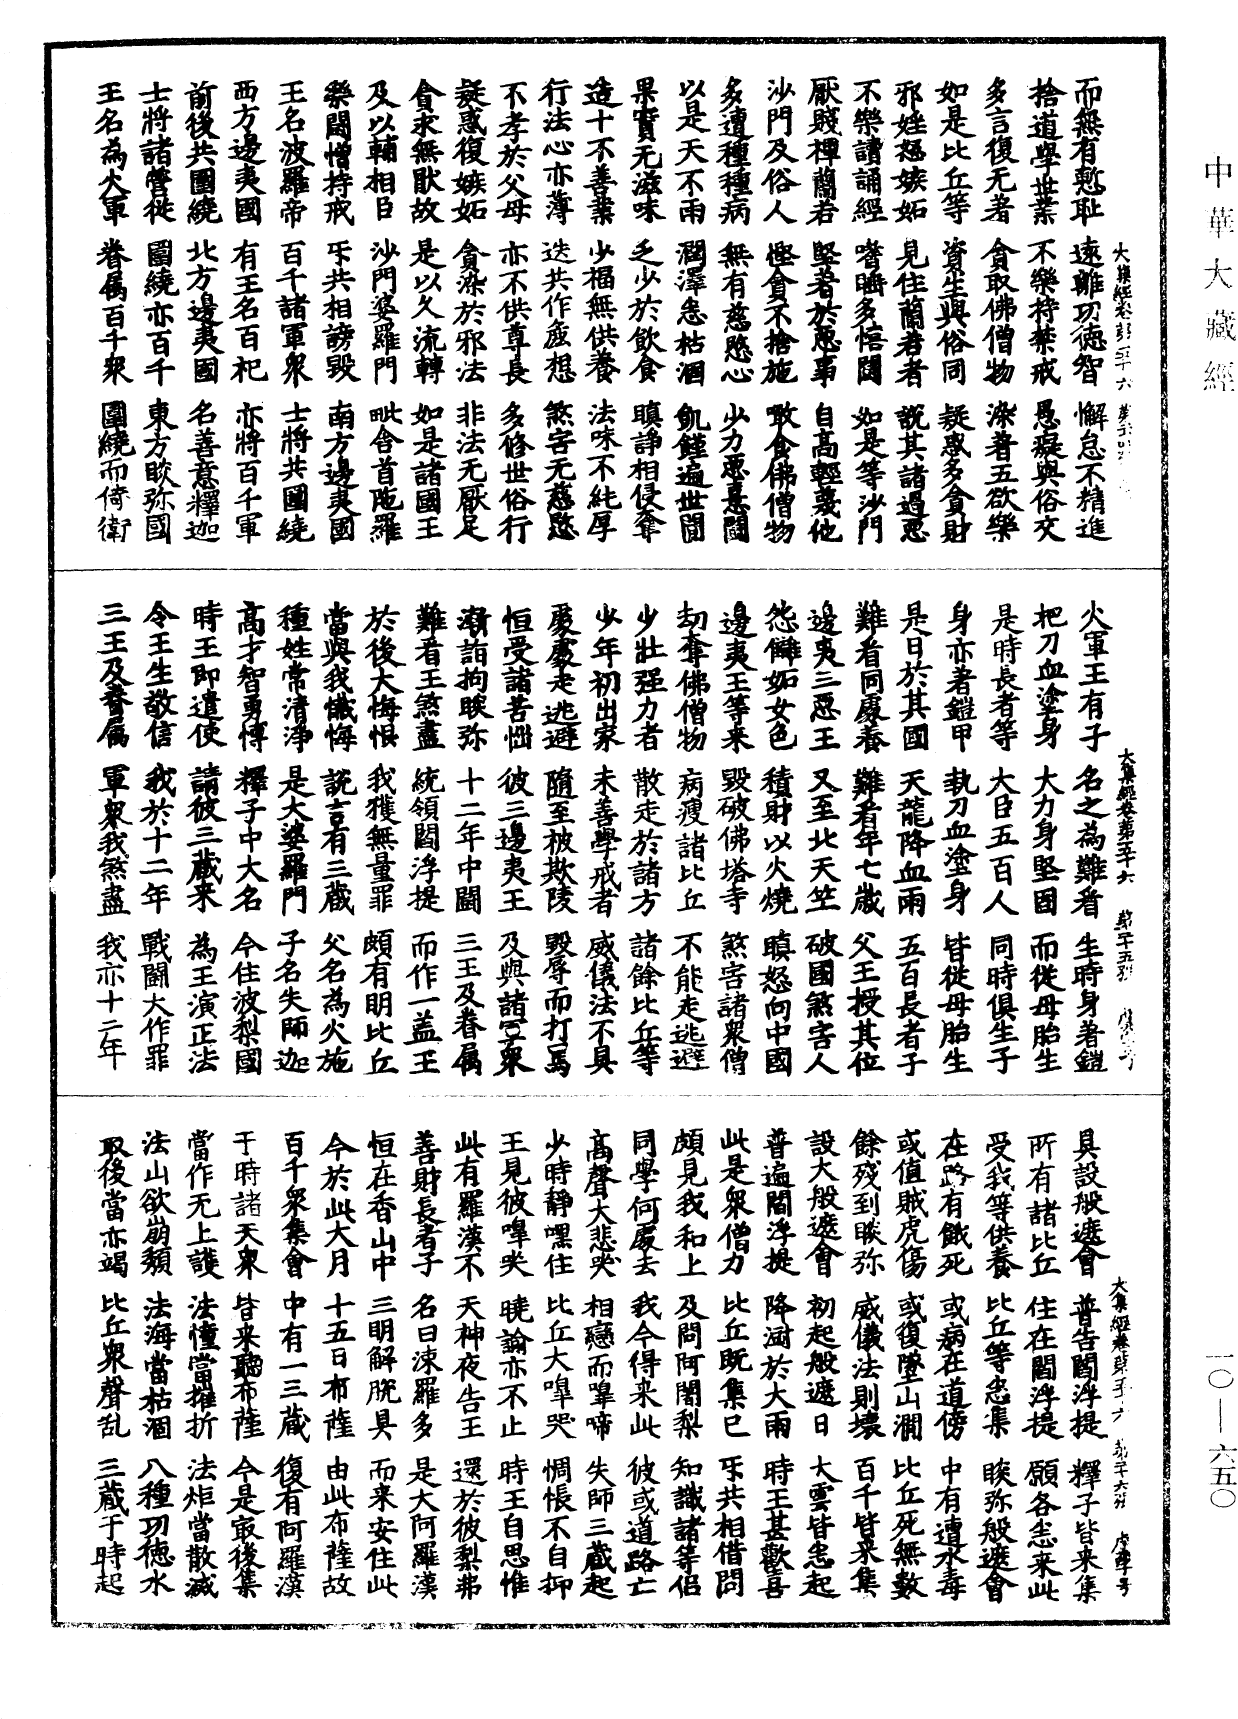 中華大藏經
而無有慙耻 遠離功德智 懈怠不精進
捨道學世業 不樂持禁戒 愚癡與俗交
多言復无著 貪取佛僧物 深著五欲樂
如是比丘等 資生與俗同 疑惑多貪財
邪婬惄嫉妬 見住蘭若者 說其諸過惡
不樂讀誦經 嗜睡多悟鬪 如是等沙門
厭賤禪蘭若 堅著於惡事 自高輕蔑他
沙門及俗人 慳貪不捨施 噉食佛僧物
多遭種種病 無有慈愍心 少力惡憙鬪
以是天不雨 潤澤悉枯涸 飢饉遍世間
果實无滋味 乏少於飲食 瞋諍相侵奪
造十不善業 少福無供養 法味不純厚
行法心亦薄 迭共作虛想 煞害无慈愍
不孝於父母 亦不供尊長 多修世俗行
疑惑復嫉妬 貪染於邪法 非法无厭足
貪求無猒故 是以久流轉 如是諸國王
及以輔相臣 沙門婆羅門 毗舍首陁羅
樂鬪憎持戒 㸦共相謗毀 南方邊夷國
王名波羅帝 百千諸軍眾 士將共圍繞
西方邊夷國 有王名百祀 亦將百千軍
前後共圍繞 北方邊夷國 名善意釋迦
士將諸營從 圍繞亦百千 東方睒弥國
王名為大軍 眷屬百千眾 圍繞而侍衛
大集經卷第五十六
火軍王有子 名之為難看 生時身著鎧
把刀血塗身 大力身堅固 而從母胎生
是時長者等 大臣五百人 同時俱生子
身亦著鎧甲 執刀血塗身 皆從母胎生
是日於其國 天龍降血雨 五百長者子
難看同處養 難看年七歲 父王授其位
邊夷三惡王 又至北天竺 破國煞害人
怨讎妬女色 積財以火燒 瞋怒向中國
邊夷王等來 毀破佛塔寺 煞害諸眾僧
刧奪佛僧物 病瘦諸比丘 不能走逃避
少壯强力者 散走於諸方 諸餘比丘等
少年初出家 未善學戒者 威儀法不具
處處走逃避 隨至被欺陵 毀辱而打罵
恒受諸苦惱 彼三邊夷王 及與諸軍眾
漸詣拘睒弥 十二年中鬪 三王及眷屬
難看王煞盡 統領閻浮提 而作一盖王
於後大悔恨 我獲無量罪 頗有明比丘
當與我懺悔 說言有三藏 父名為火施
種姓常清淨 是大婆羅門 子名失師迦
高才智勇博 釋子中大名 今住波梨國
時王即遣使 請彼三藏来 為王演正法
令王生敬信 我於十二年 戰鬪大作罪
三王及眷屬 軍眾我煞盡 我亦十二年
大集經卷第五十六 第二十五張
具設般遮會 普告閻浮提 釋子皆来集
所有諸比丘 住在閻浮提 願各悉来此
受我等供養 比丘等悉集 睒弥般遮會
在路有餓死 或病在道傍 中有遭水毒
或值賊虎傷 或復墜山澗 比丘死無數
餘殘到睒弥 威儀法則壞 百千皆来集
設大般遮會 初起般遮日 大雲皆悉起
普遍閻浮提 降澍於大雨 時王甚歡喜
此是眾僧力 比丘既集已 㸦共相借問
頗見我和上 及問阿闍梨 知識諸等侣
同學何處去 我今得来此 彼或道路亡
高聲大悲哭 相戀而嘷啼 失師三藏起
少時靜嘿住 比丘大嘷哭 惆悵不自抑
王見彼嘷哭 曉諭亦不止 時王自思惟
此有羅漢不 天神夜告王 還於彼梨弗
善財長者子 名曰涑羅多 是大阿羅漢
恒在香山中 三明解脫具 而来安住此
今於此大月 十五日布薩 由此布薩故
百千眾集會 中有一三藏 復有阿羅漢
于時諸天眾 皆来聽布薩 今是㝡後集
當作无上護 法憧當摧折 法炬當散滅
法山欲崩頹 法海當枯涸 八種功德水
㝡後當亦竭 比丘眾聲乱 三藏于時起
大集經卷第五十六 第二十六張
一〇—六五〇